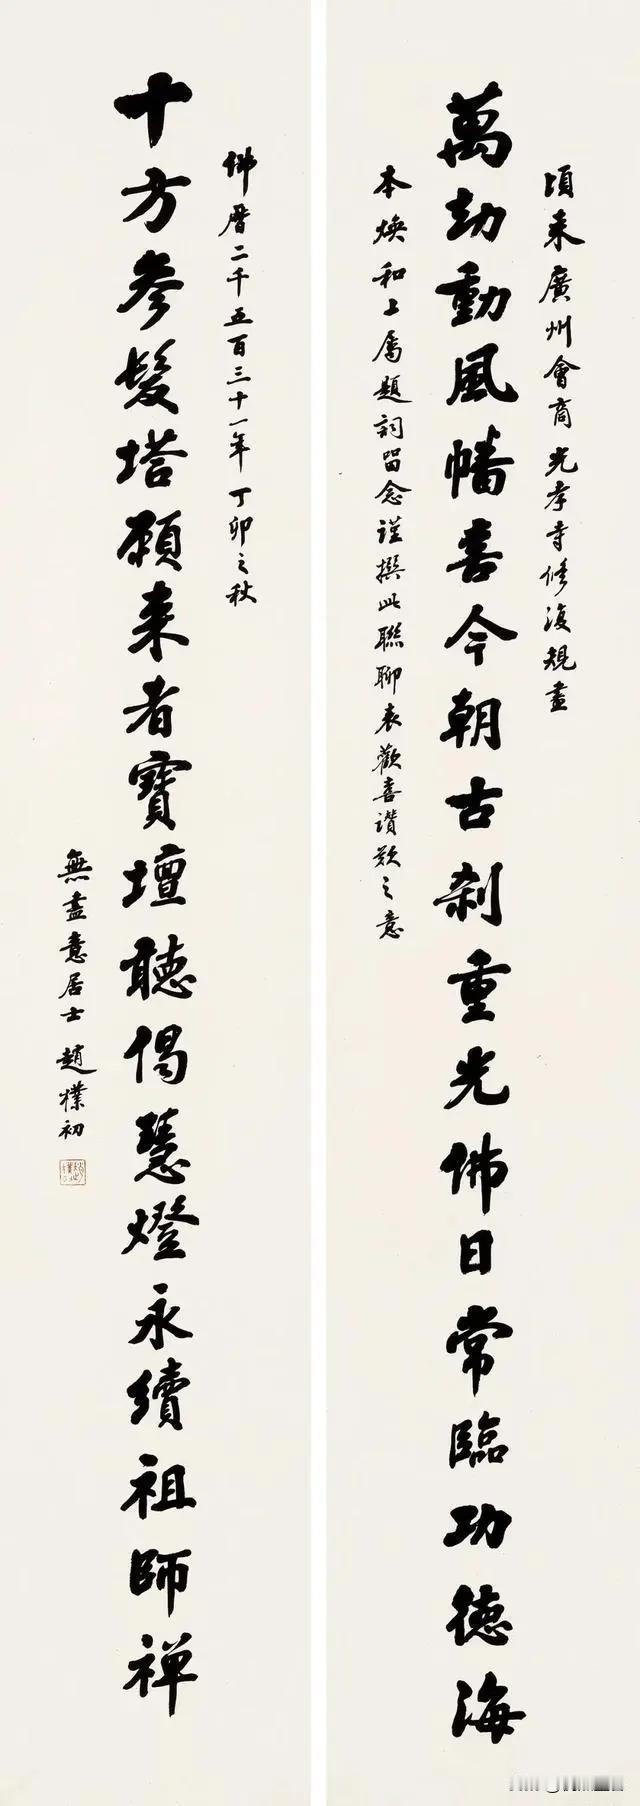 頃来廣州會商光孝寺修復規畫
萬劫動風幡喜今朝古刹重光佛日常臨功德海
本煥和上属題詞留念謹撰此聯聊表歡喜讚歎之意
佛曆二千五百三十一年丁卯之秋
十方參髮塔願来者寶壇聽偈慧燈永續祖師禅
無盡意居士趙樸初